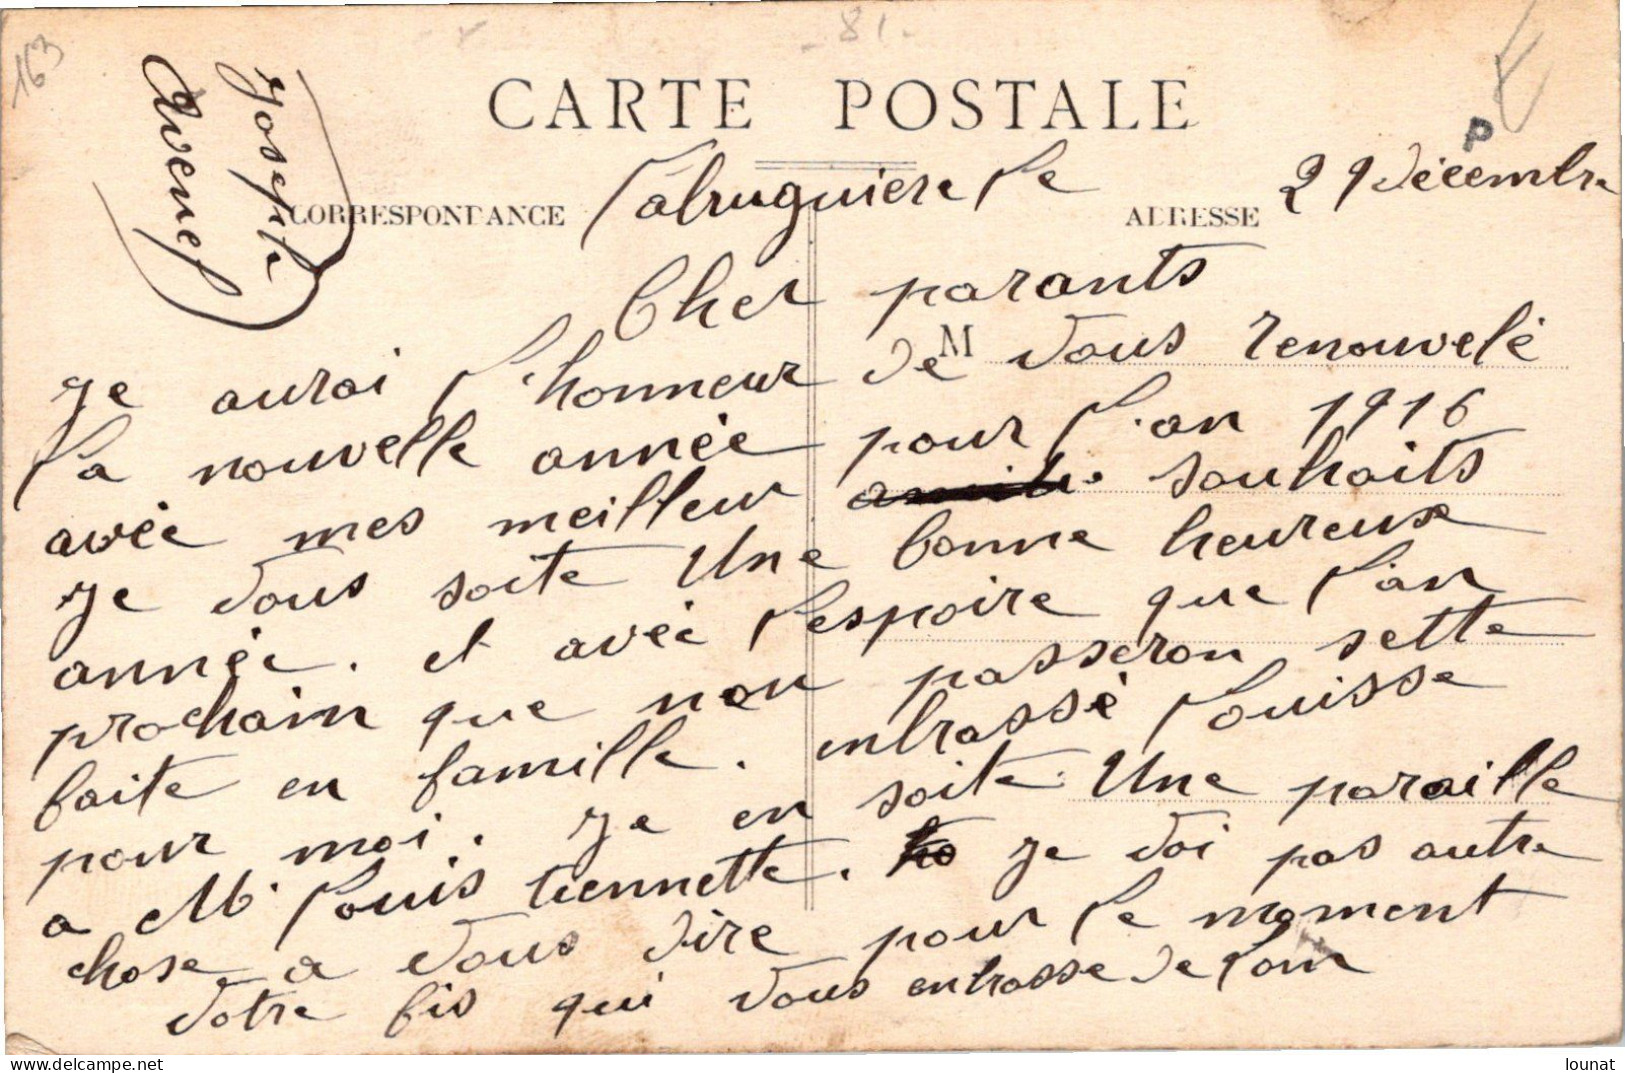 163
81.
CARTE POSTALE
P
Joseph
Avenel
CORRESPONDANCE
ADRESSE
Labruguiere le 29 Décembre
Cher parants
M
Je aurai l'honneur de vous renouvelé
la nouvelle année pour l'an 1916
avéc mes meilleur souhaits
Je vous soite Une bonne heureuse
année. et avéc l'espoire que l'an
prochain que nou passeron sette
faite en famille. enbrassé Louisse
pour moi. Je en soite Une paraille
a Mr Louis tiennette. Je voi pas autre
chose a vous dire pour le moment
Votre fis qui vous enbrasse de loin
lounat